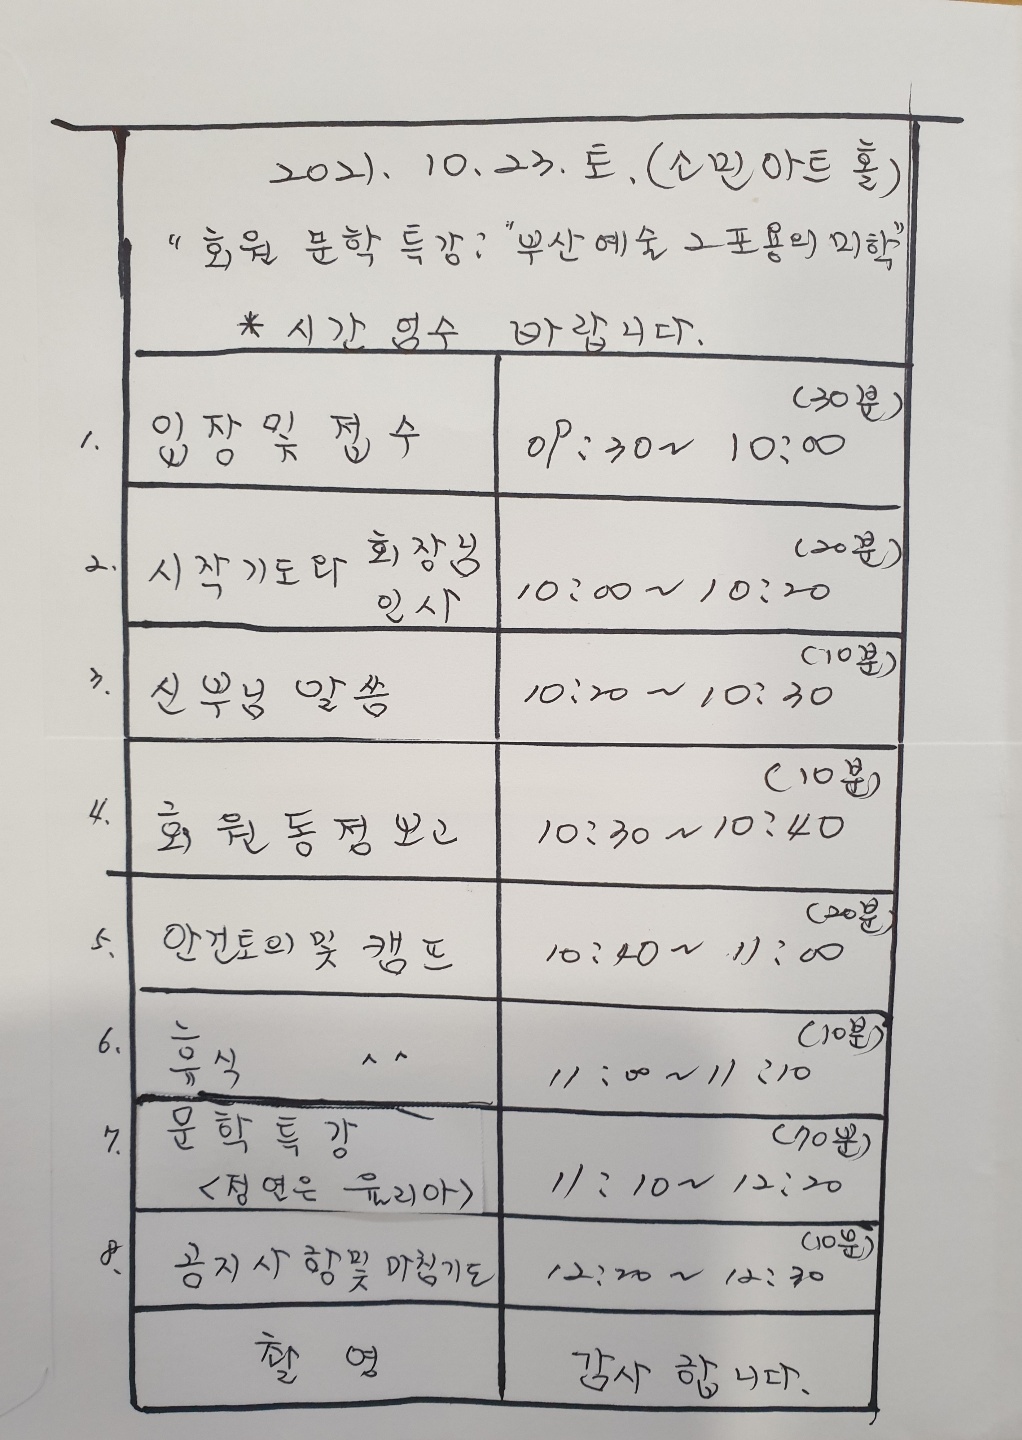 2021. 10. 23. 토. (소민아트 홀)
“회원 문학 특강: “부산예술 그 포용의 미학”
* 시간 엄수 바랍니다.
1. 입장 및 접수 09:30~ 10:00 (30분)
2. 시작기도와 회장님 인사 10:00~ 10:20 (20분)
3. 신부님 말씀 10:20 ~ 10:30 (10분)
4. 회원동정보고 10:30 ~ 10:40 (10분)
5. 안건토의 및 캠프 10:40~ 11:00 (20분)
6. 휴식 ^^ 11:00~11:10 (10분)
7. 문학특강 11:10~ 12:20 (70분)
<정연은 유리아>
8. 공지사항및 마침기도 12:20~ 12:30 (10분)
촬영 감사 합니다.